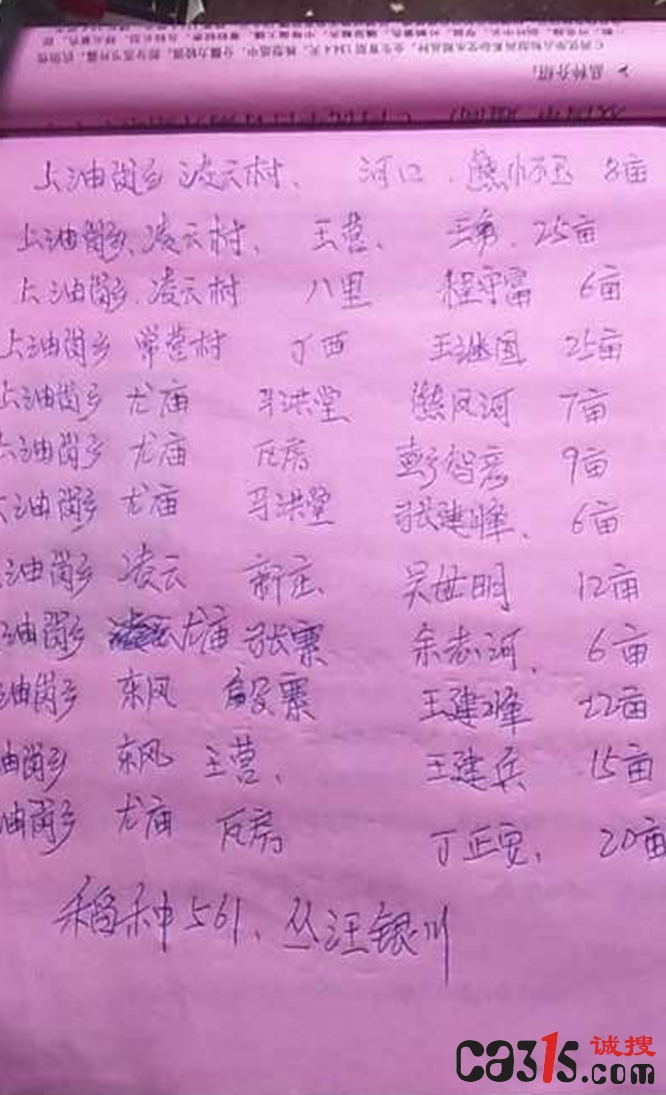 品种介绍:
上油岗乡 凌云村、 河口、熊怀玉 8亩
上油岗乡、凌云村、 王营、 王勇、25亩
上油岗乡、凌云村 八里 程守富 6亩
上油岗乡 常营村 丁西 王继国 25亩
上油岗乡 尤庙 马洪堂 熊风河 7亩
上油岗乡 尤庙 瓦房 彭智彦 9亩
上油岗乡 尤庙 马洪堂 张建峰、 6亩
上油岗乡 凌云 新庄 吴世明 12亩
上油岗乡 尤庙 张寨 余志河、 6亩
油岗乡 东风 寨 王建峰 22亩
油岗乡 东风 王营、 王建兵 15亩
油岗乡 尤庙 瓦房 丁正宽、 20亩
稻种561、丛汪银川
诚搜
ca315.com